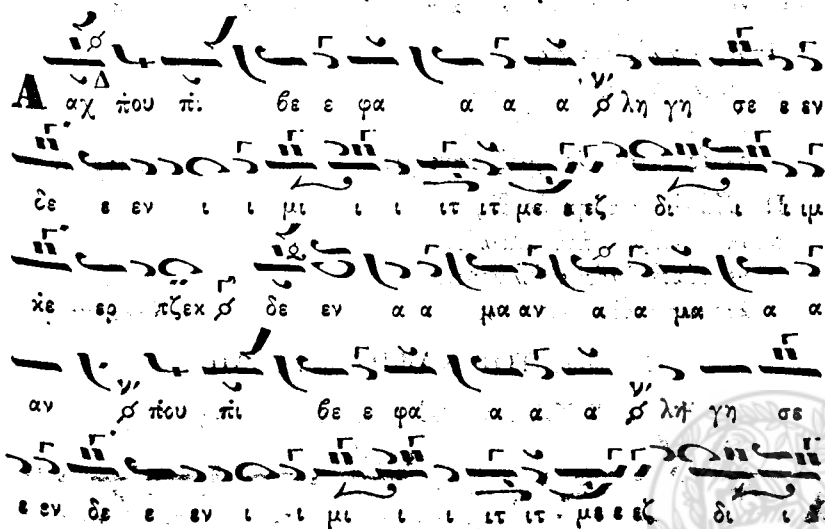 Α αχ π̇ου π̇ι βε ε φα α α α λη γη σε ε εν
δε ε εν ι ι μι ι ι ιτ ιτ με ε εζ δι ι ι ιμ
κ̇ε ερ τζεκ δε εν α α μα αν α α μα α α
αν π̇ου π̇ι βε ε φα α α α λη γη σε
ε εν δε ε εν ι ι μι ι ι ιτ ιτ με ε εζ δι ι